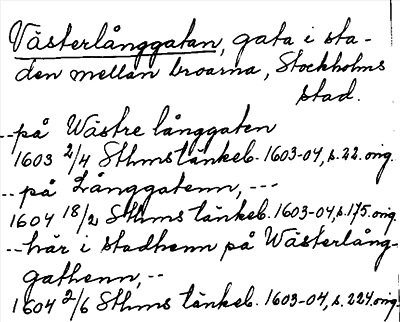 Västerlånggatan, gata i sta-
den mellan broarna, Stockholms
stad.
--på Wästre långgaten
1603 2/4 Sthms tänkeb. 1603-04, s. 22. orig.
-- på Långgatenn, ---
1604 18/2 Sthms tänkeb. 1603-04, s. 175. orig.
--här i stadhenn på Wästerlång-
gathenn, --
1604 2/6 Sthms tänkeb. 1603-04, s. 224. orig.